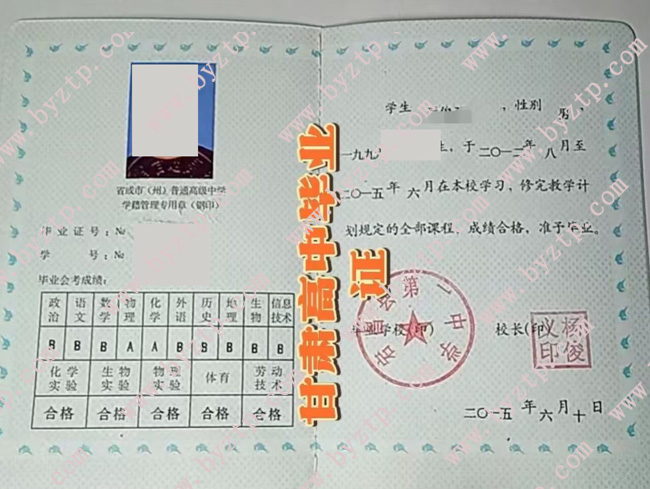 省咸市（州）普通高级中学
学籍管理专用章（钢印）
毕 业 证 号：№
学 号：№
毕业会考成绩：
政治 语文 数学 物理 化学 外语 历史 地理 生物 信息技术
B B B A A B B B B B
化学实验 生物实验 物理实验 体育 劳动技术
合格 合格 合格 合格 合格
甘肃高中毕业证
学生 ，性别 男，
一九九 生，于二〇一二年 八月至
二〇一五年 六月在本校学习，修完教学计
划规定的全部课程，成绩合格，准予毕业。
毕业学校(印) 校长(印)
第一中学
杨俊议印
二〇一五年 六月十日
www.byztp.com